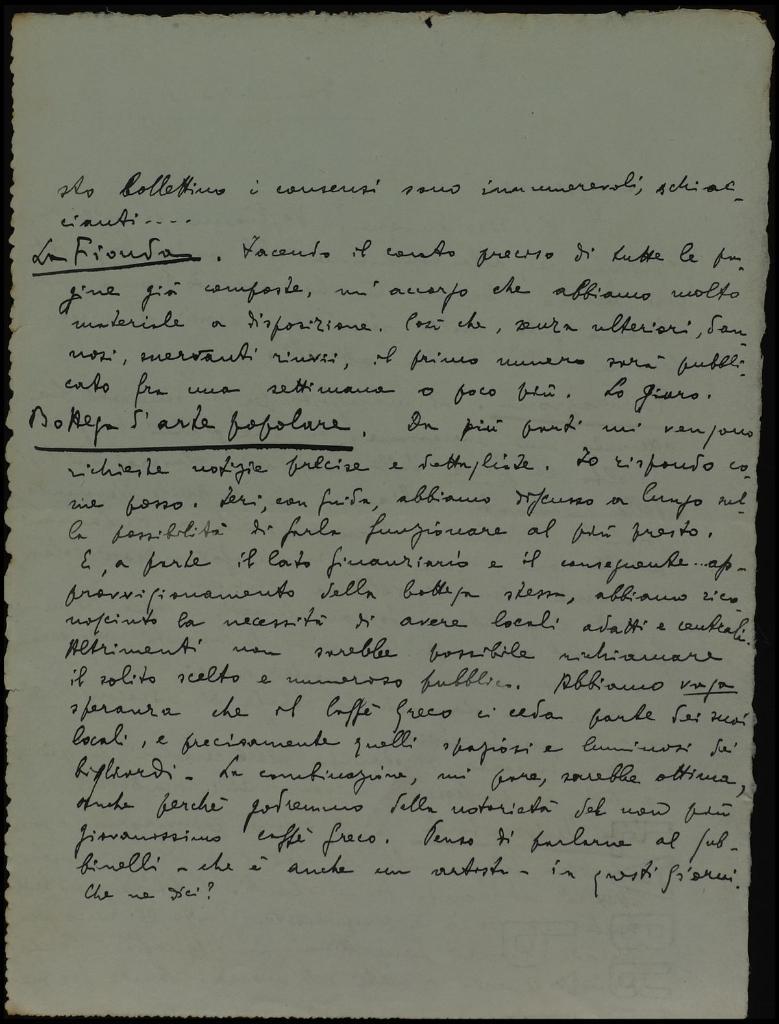 sto bollettino i consensi sono innumerevoli, schiac-
cianti....
La Fionda. Facendo il conto preciso di tutte le pa-
gine già composte, m'accorgo che abbiamo molto
materiale a disposizione. Così che, senza ulteriori, dan-
nosi, snervanti rinvii, il primo numero sarà pubbli-
cato fra una settimana o poco più. Lo giuro.
Bottega d'arte popolare. Da più parti mi vengono
richieste notizie precise e dettagliate. Io rispondo co-
me posso. Ieri, con Guida, abbiamo discusso a lungo sul-
la possibilità di farla funzionare al più presto.
E, a parte il lato finanziario e il conseguente... ap-
provvigionamento della bottega stessa, abbiamo rico-
nosciuto la necessità di avere locali adatti e centrali.
Altrimenti non sarebbe possibile richiamare
il solito scelto e numeroso pubblico. Abbiamo vaga
speranza che il Caffè Greco ci ceda parte dei suoi
locali, e precisamente quelli spaziosi e luminosi dei
bigliardi. La combinazione, mi pare, sarebbe ottima,
anche perché godremmo della notorietà del non più
giovanissimo caffè Greco. Penso di parlarne al Gub-
binelli - che è anche un artista - in questi giorni.
Che ne dici?